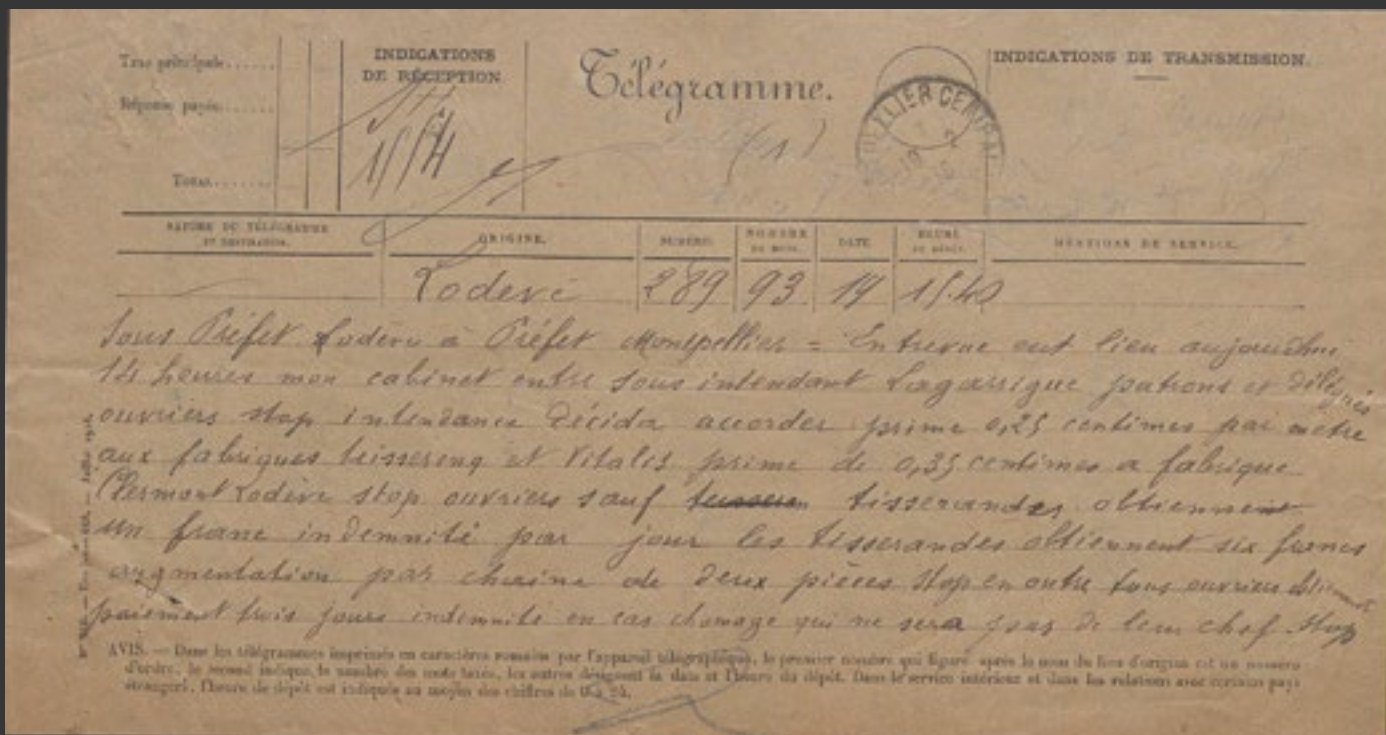 Taxe principale......
Réponse payée......
TOTAL.......
INDICATIONS
DE RÉCEPTION
15/4
Télégramme.
(1)
ATELIER CENTRAL
INDICATIONS DE TRANSMISSION.
NATURE DU TÉLÉGRAMME
ET DESTINATION.
ORIGINE.
NUMÉRO.
NOMBRE
DE MOTS.
DATE
HEURE
DE DÉPÔT.
MENTIONS DE SERVICE.
Lodève 289 93 14 15.40
Sous Préfet Lodève à Préfet Montpellier = Entrevue eut lieu aujourdhui
14 heures mon cabinet entre sous intendant Lagarrigue patrons et délégués
ouvriers stop intendance décida accorder prime 0,25 centimes par mètre
aux fabriques teisserenq et Vitalis prime de 0,35 centimes a fabrique
Clermont Lodève stop ouvriers sauf tisserandes obtiennent
un franc indemnité par jour les tisserandes obtiennent six francs
augmentation par chaine de deux pièces stop en outre tous ouvriers obtiennent
paiement trois jours indemnité en cas chomage qui ne sera pas de leur chef stop
AVIS. — Dans les télégrammes imprimés en caractères romains par l'appareil télégraphique, le premier nombre qui figure après le nom du lieu d'origine est un numéro
d'ordre, le second indique le nombre des mots taxés, les autres désignent la date et l'heure du dépôt. Dans le service intérieur et dans les relations avec certains pays
étrangers, l'heure de dépôt est indiquée au moyen des chiffres de 0 à 24.